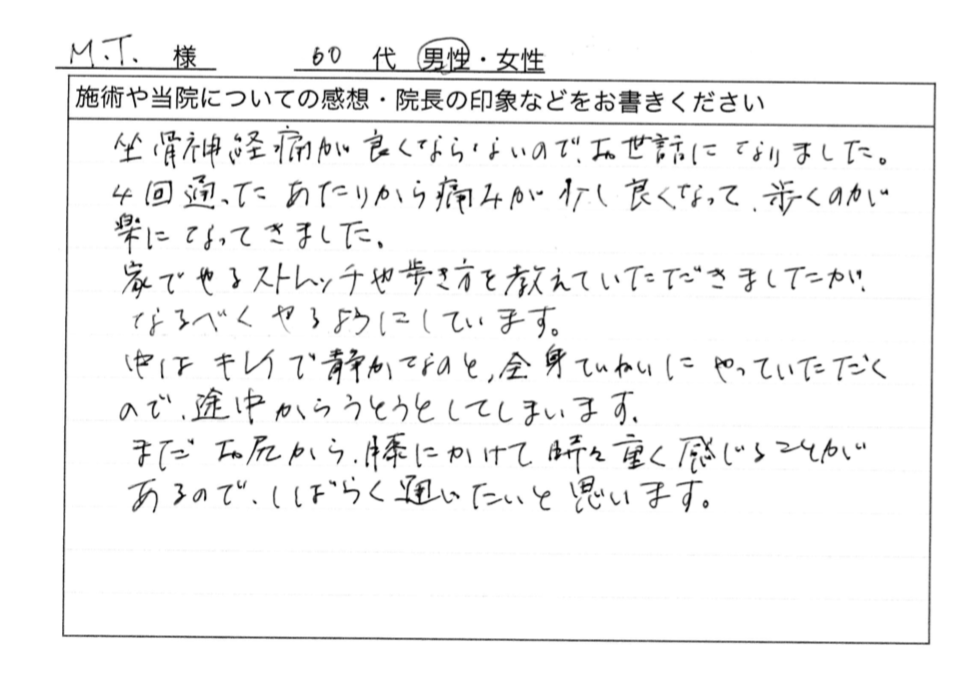 M.T. 様 60 代 男性・女性
施術や当院についての感想・院長の印象などをお書きください
坐骨神経痛が良くならないので、お世話になりました。
4回通ったあたりから痛みが少し良くなって、歩くのが
楽になってきました。
家でやるストレッチや歩き方を教えていただきましたが、
なるべくやるようにしています。
中はキレイで静かなのと、全身ていねいにやっていただく
ので、途中からうとうとしてしまいます。
まだお尻から、膝にかけて時々重く感じることが
あるので、しばらく通いたいと思います。